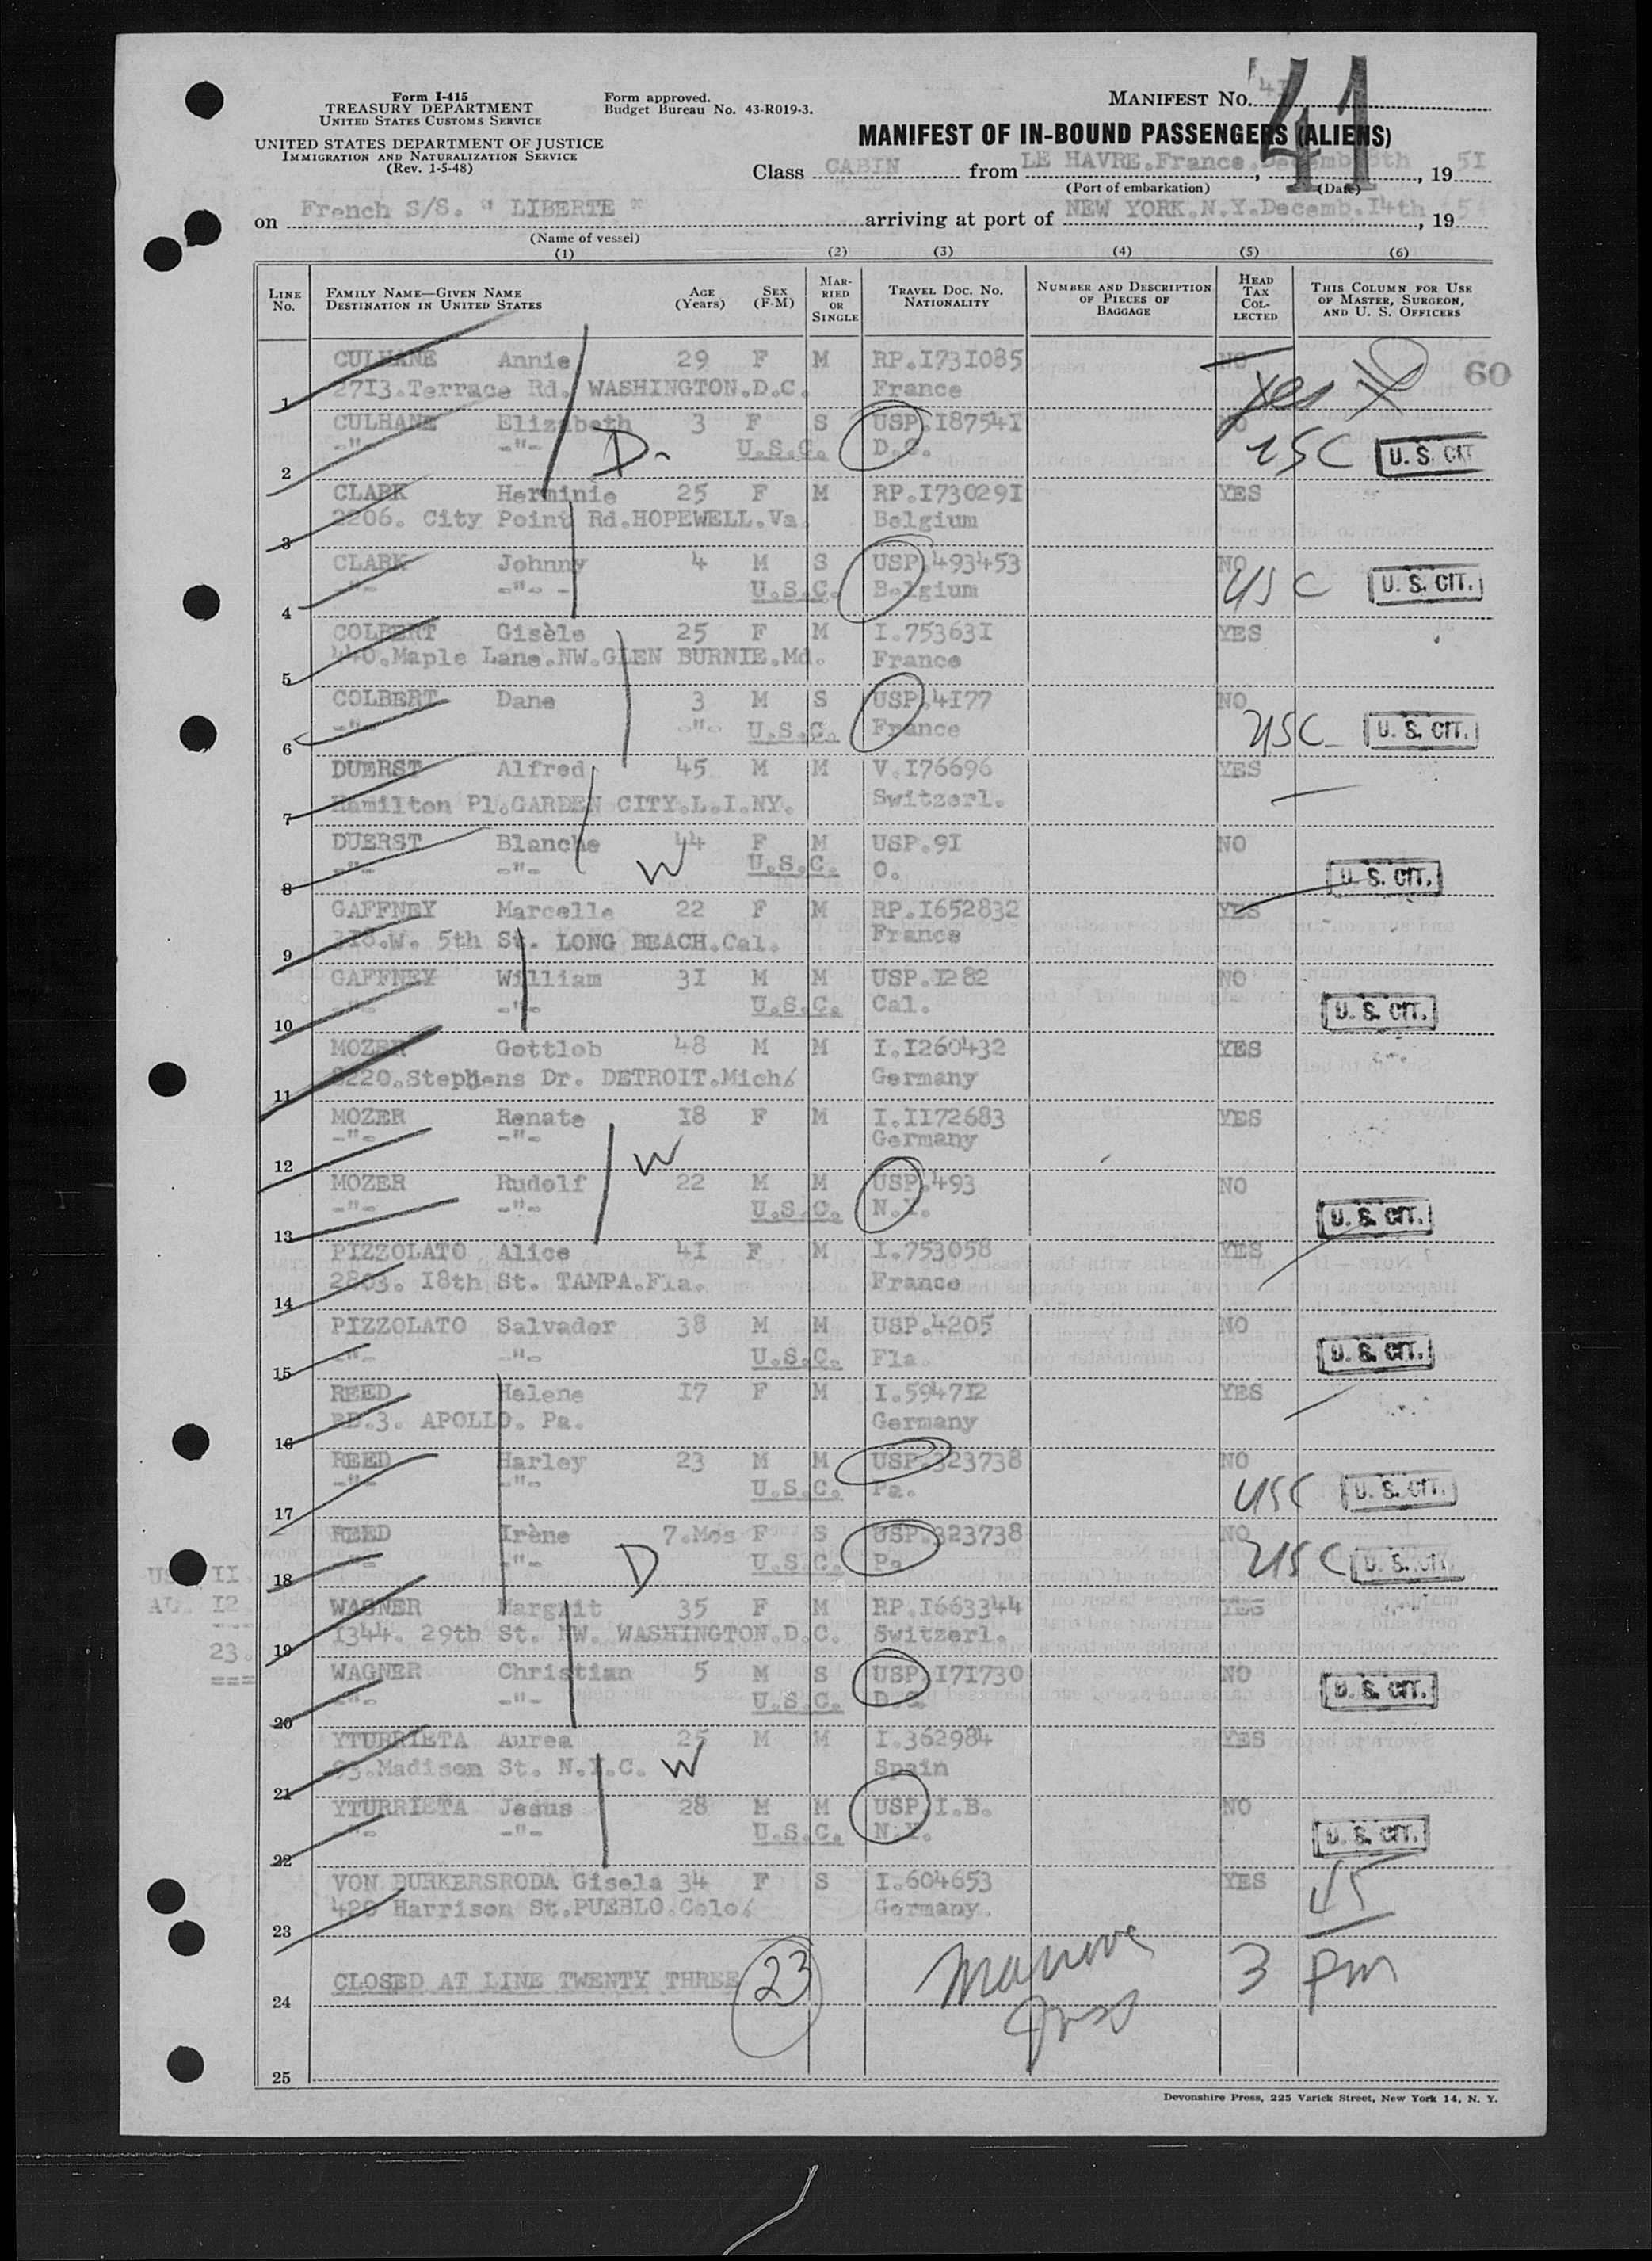 Form I-415
TREASURY DEPARTMENT
UNITED STATES CUSTOMS SERVICE
UNITED STATES DEPARTMENT OF JUSTICE
IMMIGRATION AND NATURALIZATION SERVICE
(Rev. 1-5-48)
Form approved.
Budget Bureau No. 43-R019-3.
MANIFEST No. 41
41
MANIFEST OF IN-BOUND PASSENGERS (ALIENS)
Class CABIN from LE HAVRE.France. , 19 51
(Port of embarkation) (Date)
on French S/S. " LIBERTE " arriving at port of NEW YORK.N.Y.Decemb.14th , 19 51
(Name of vessel)
(1) (2) (3) (4) (5) (6)
LINE No. FAMILY NAME—GIVEN NAME DESTINATION IN UNITED STATES AGE (Years) SEX (F-M) MARRIED OR SINGLE TRAVEL DOC. No. NATIONALITY NUMBER AND DESCRIPTION OF PIECES OF BAGGAGE HEAD TAX COLLECTED THIS COLUMN FOR USE OF MASTER, SURGEON, AND U. S. OFFICERS
CULHANE Annie 29 F M RP.I731085 NO 60
1 2713.Terrace Rd. WASHINGTON.D.C. France Yes
CULHANE Elizabeth 3 F S USP.187541 NO
2 -"- -"- D. U.S.C. D.C. USC U. S. CIT
CLARK Herminie 25 F M RP.I730291 YES
3 2206. City Point Rd.HOPEWELL.Va. Belgium
CLARK Johnny 4 M S USP.493453 NO
4 -"- -"- U.S.C. Belgium USC U. S. CIT.
COLBERT Gisèle 25 F M I.753631 YES
5 440.Maple Lane.NW.GLEN BURNIE.Md. France
COLBERT Dane 3 M S USP.4177 NO
6 -"- -"- U.S.C. France USC U. S. CIT.
DUERST Alfred 45 M M V.I76696 YES
7 Hamilton Pl.GARDEN CITY.L.I.NY. Switzerl.
DUERST Blanche 44 F M USP.91 NO
8 -"- -"- W U.S.C. O. U. S. CIT.
GAFFNEY Marcelle 22 F M RP.I652832 YES
9 318.W. 5th St. LONG BEACH.Cal. France
GAFFNEY William 31 M M USP.1282 NO
10 -"- -"- U.S.C. Cal. U. S. CIT.
MOZER Gottlob 48 M M I.I260432 YES
11 8220.Stephens Dr. DETROIT.Mich. Germany
MOZER Renate 18 F M I.II72683 YES
12 -"- -"- Germany
W
MOZER Rudolf 22 M M USP.493 NO
13 -"- -"- U.S.C. N.Y. U. S. CIT.
PIZZOLATO Alice 41 F M I.753058 YES
14 2803. 18th St. TAMPA.Fla. France
PIZZOLATO Salvador 38 M M USP.4205 NO
15 -"- -"- U.S.C. Fla. U. S. CIT.
REED Helene 17 F M I.594712 YES
16 RD.3. APOLLO. Pa. Germany
REED Harley 23 M M USP.323738 NO
17 -"- -"- U.S.C. Pa. USC U. S. CIT.
REED Irène 7.Mos F S USP.323738 NO
18 -"- -"- D U.S.C. Pa USC U. S. CIT.
WAGNER Margrit 35 F M RP.I663344 YES
19 1344. 29th St. NW. WASHINGTON.D.C. Switzerl.
WAGNER Christian 5 M S USP.171730 NO
20 -"- -"- U.S.C. D.C. U. S. CIT.
YTURRIETA Aurea 25 M M I.362984 YES
21 93.Madison St. N.Y.C. W Spain
YTURRIETA Jesus 28 M M USP.I.B. NO
22 -"- -"- U.S.C. N.Y. U. S. CIT.
VON BURKERSRODA Gisela 34 F S I.604653 YES 45
23 420 Harrison St.PUEBLO.Colo. Germany.
24 CLOSED AT LINE TWENTY THREE 23 3 pm
25
US. II.
AL. I2
23.
===
Devonshire Press, 225 Varick Street, New York 14, N. Y.